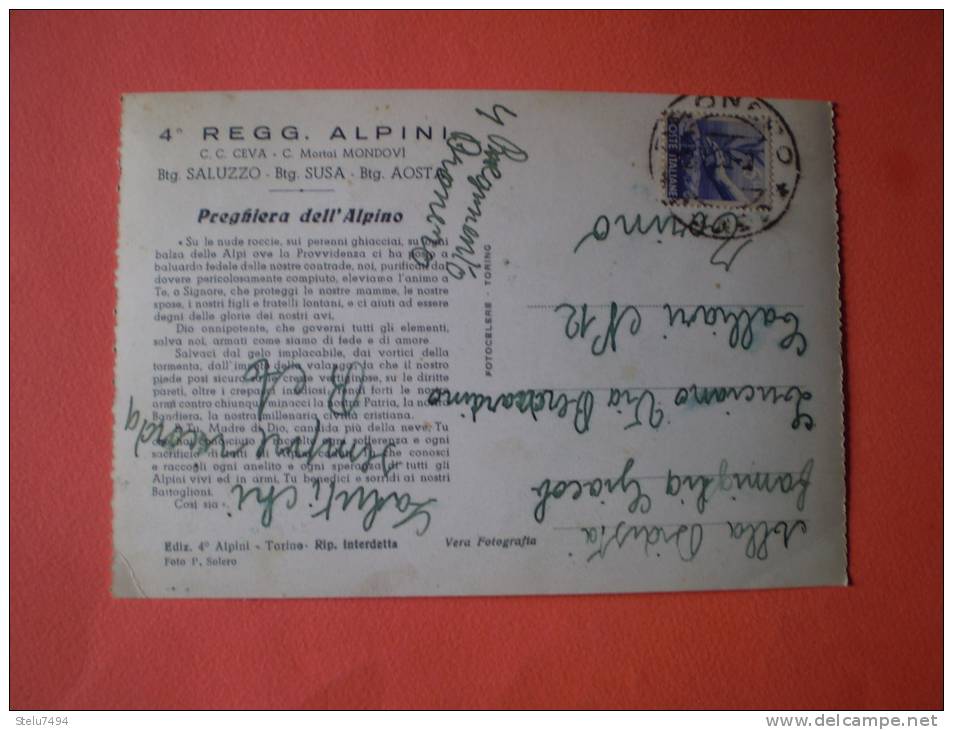 4° REGG. ALPINI
C. C. CEVA - C. Mortai MONDOVÌ
Btg. SALUZZO - Btg. SUSA - Btg. AOSTA
Preghiera dell'Alpino
« Su le nude roccie, sui perenni ghiacciai, su ogni
balza delle Alpi ove la Provvidenza ci ha posto a
baluardo fedele delle nostre contrade, noi, purificati dal
dovere pericolosamente compiuto, eleviamo l'animo a
Te, o Signore, che proteggi le nostre mamme, le nostre
spose, i nostri figli e fratelli lontani, e ci aiuti ad essere
degni delle glorie dei nostri avi.
Dio onnipotente, che governi tutti gli elementi,
salva noi, armati come siamo di fede e di amore.
Salvaci dal gelo implacabile, dai vortici della
tormenta, dall'impeto della valanga, fa che il nostro
piede posi sicuro su le creste vertiginose, su le diritte
pareti, oltre i crepacci insidiosi, rendi forti le nostre
armi contro chiunque minacci la nostra Patria, la nostra
Bandiera, la nostra millenaria civiltà cristiana.
E Tu, Madre di Dio, candida più della neve, Tu
che hai conosciuto e raccolto ogni sofferenza e ogni
sacrificio di tutti gli Alpini caduti, Tu che conosci
e raccogli ogni anelito e ogni speranza di tutti gli
Alpini vivi ed in armi, Tu benedici e sorridi ai nostri
Battaglioni.
Così sia ».
Ediz. 4° Alpini - Torino - Rip. Interdetta
Foto P. Solero
Vera Fotografia
FOTOCELERE - TORINO
POSTE ITALIANE
Alla
famiglia Giacob
Luciano Via Bernardino
Galliari N° 12
Torino
Saluti chi
sempre ricorda
Stelu7494
www.delcampe.net